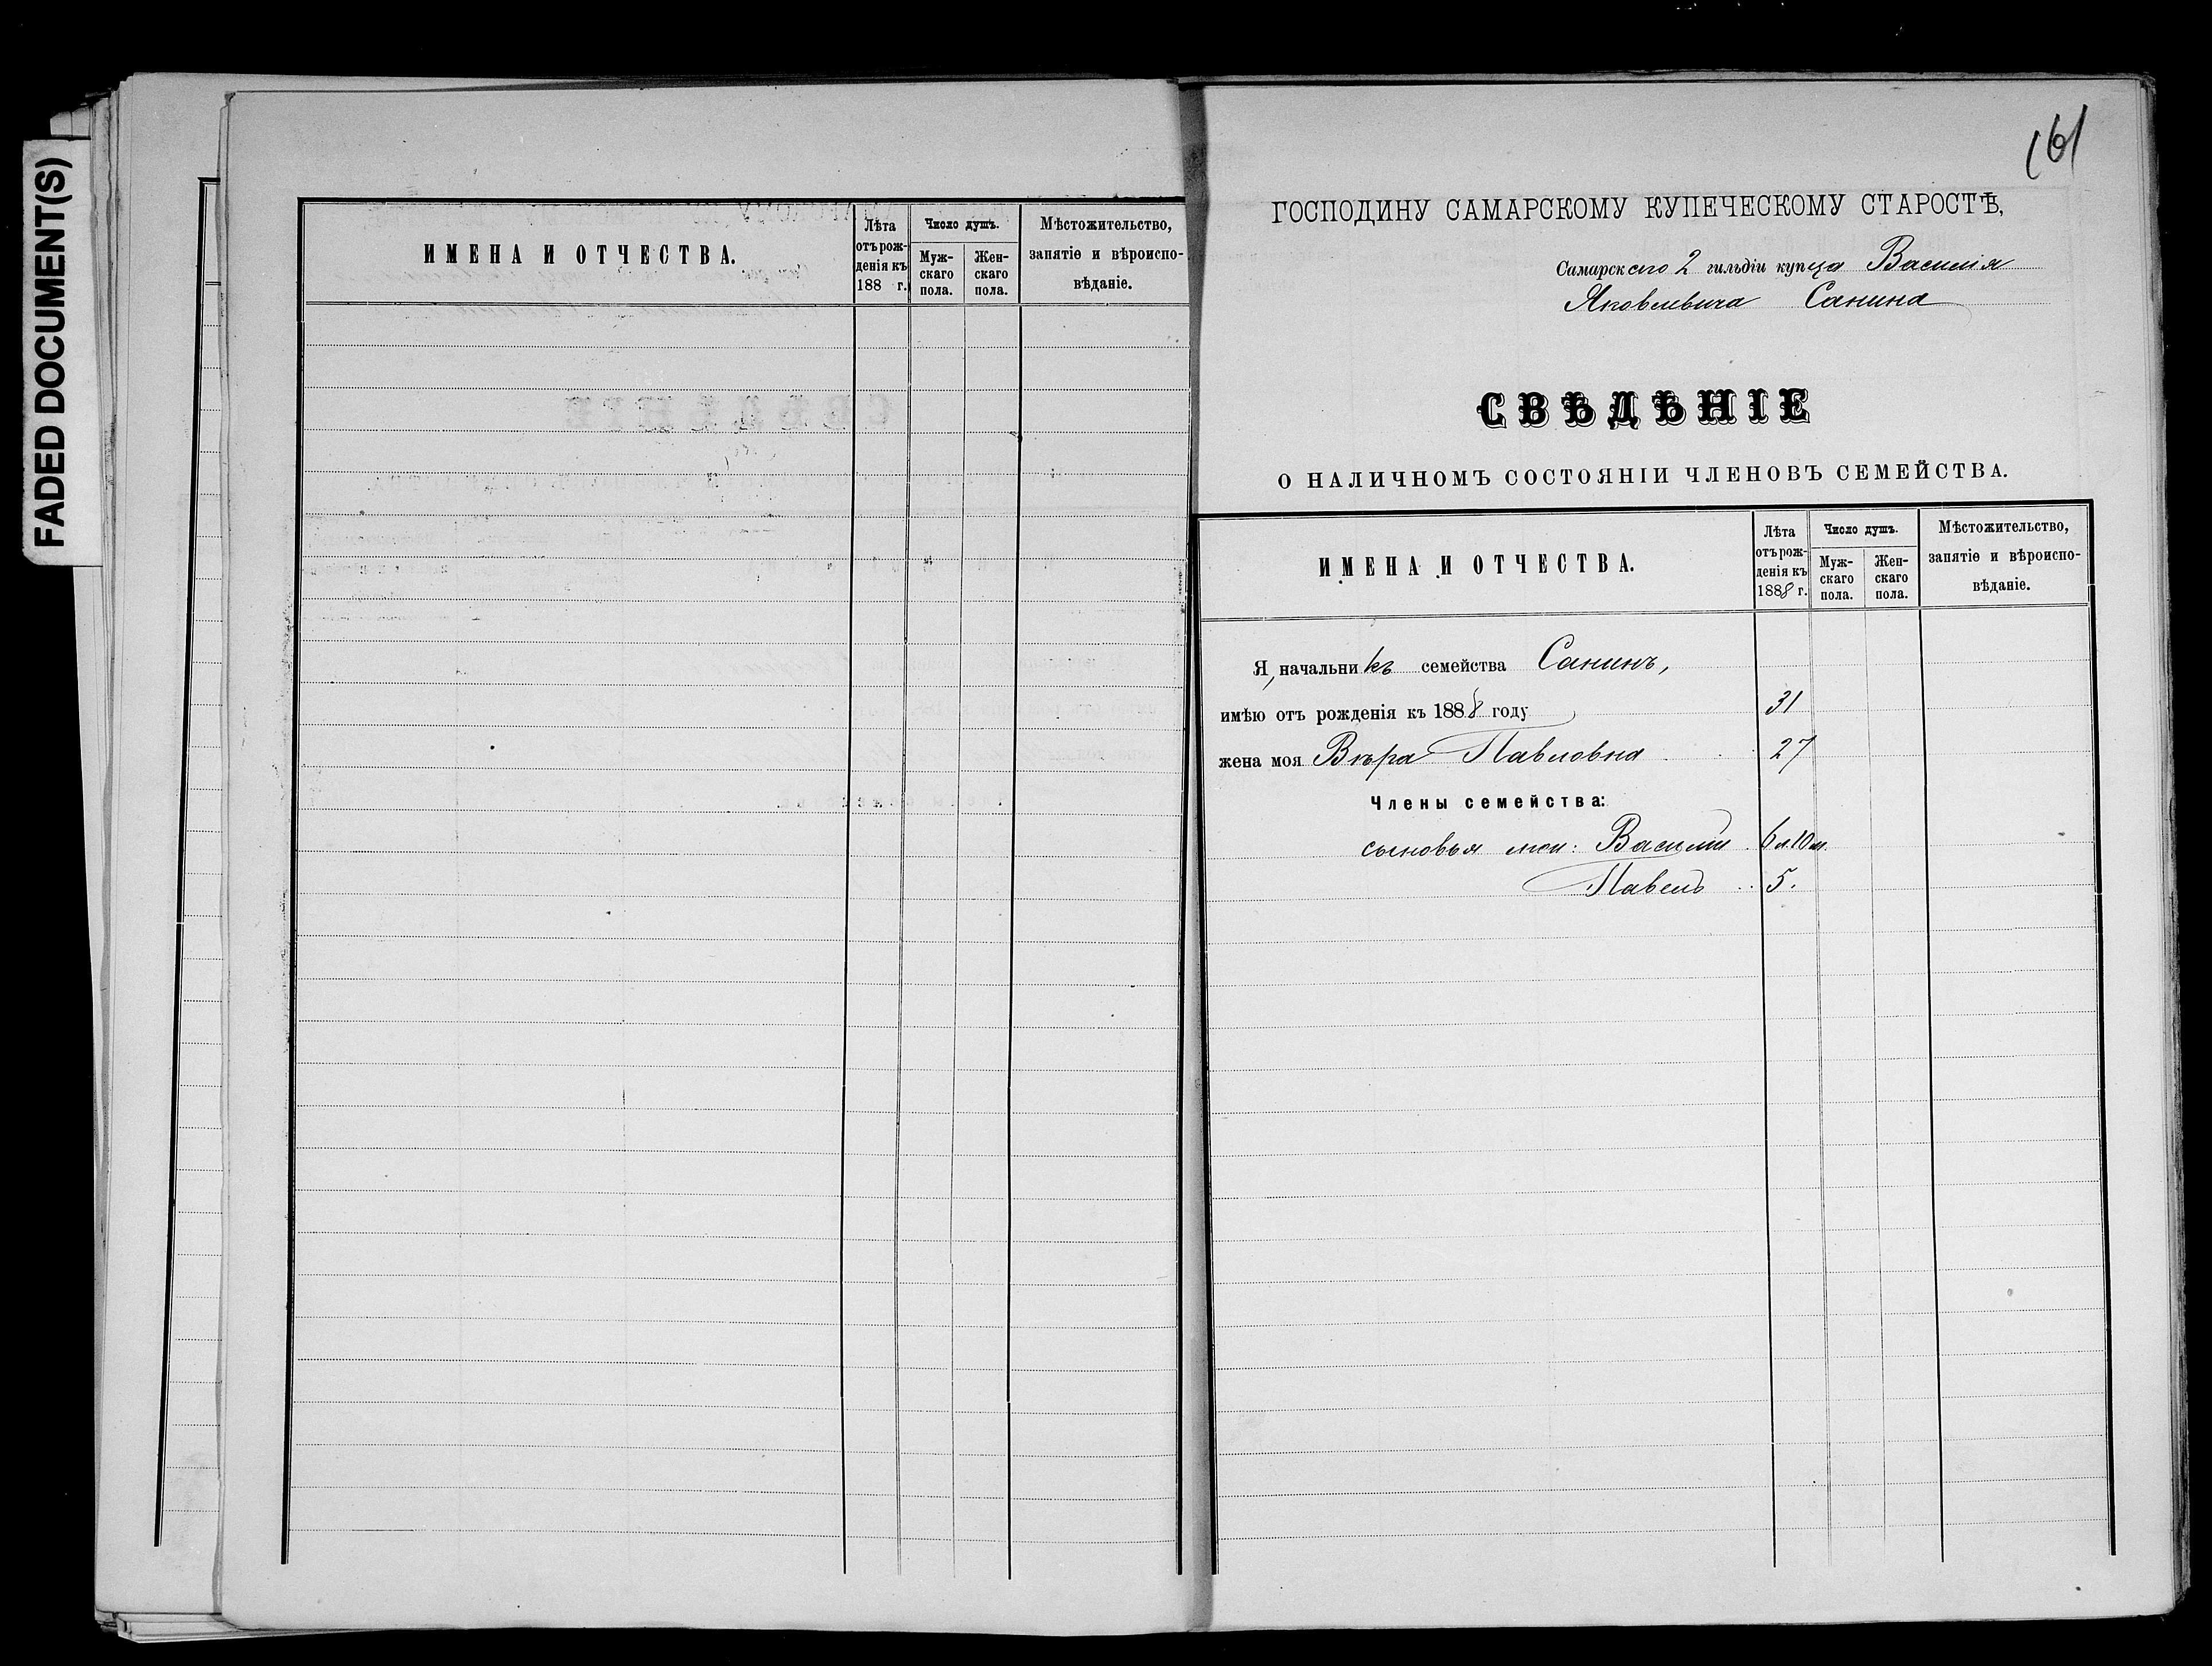 FADED DOCUMENT(S)
ИМЕНА И ОТЧЕСТВА.
Лѣта
отъ рож-
денія къ
188 г.
Число душъ.
Муж-
скаго
пола.
Жен-
скаго
пола.
Мѣстожительство,
занятіе и вѣроиспо-
вѣданіе.
161
ГОСПОДИНУ САМАРСКОМУ КУПЕЧЕСКОМУ СТАРОСТѢ,
Самарского 2 гильдіи купца Василія
Яковлевича Санина
СВѢДѢНІЕ
О НАЛИЧНОМЪ СОСТОЯНІИ ЧЛЕНОВЪ СЕМЕЙСТВА.
ИМЕНА И ОТЧЕСТВА.
Лѣта
отъ рож-
денія къ
1888 г.
Число душъ.
Муж-
скаго
пола.
Жен-
скаго
пола.
Мѣстожительство,
занятіе и вѣроиспо-
вѣданіе.
Я, начальникъ семейства Санинъ,
имѣю отъ рожденія къ 1888 году 31
жена моя Вѣра Павловна 27
Члены семейства:
сыновья мои: Василій 6 л. 10 м.
Павелъ 5.